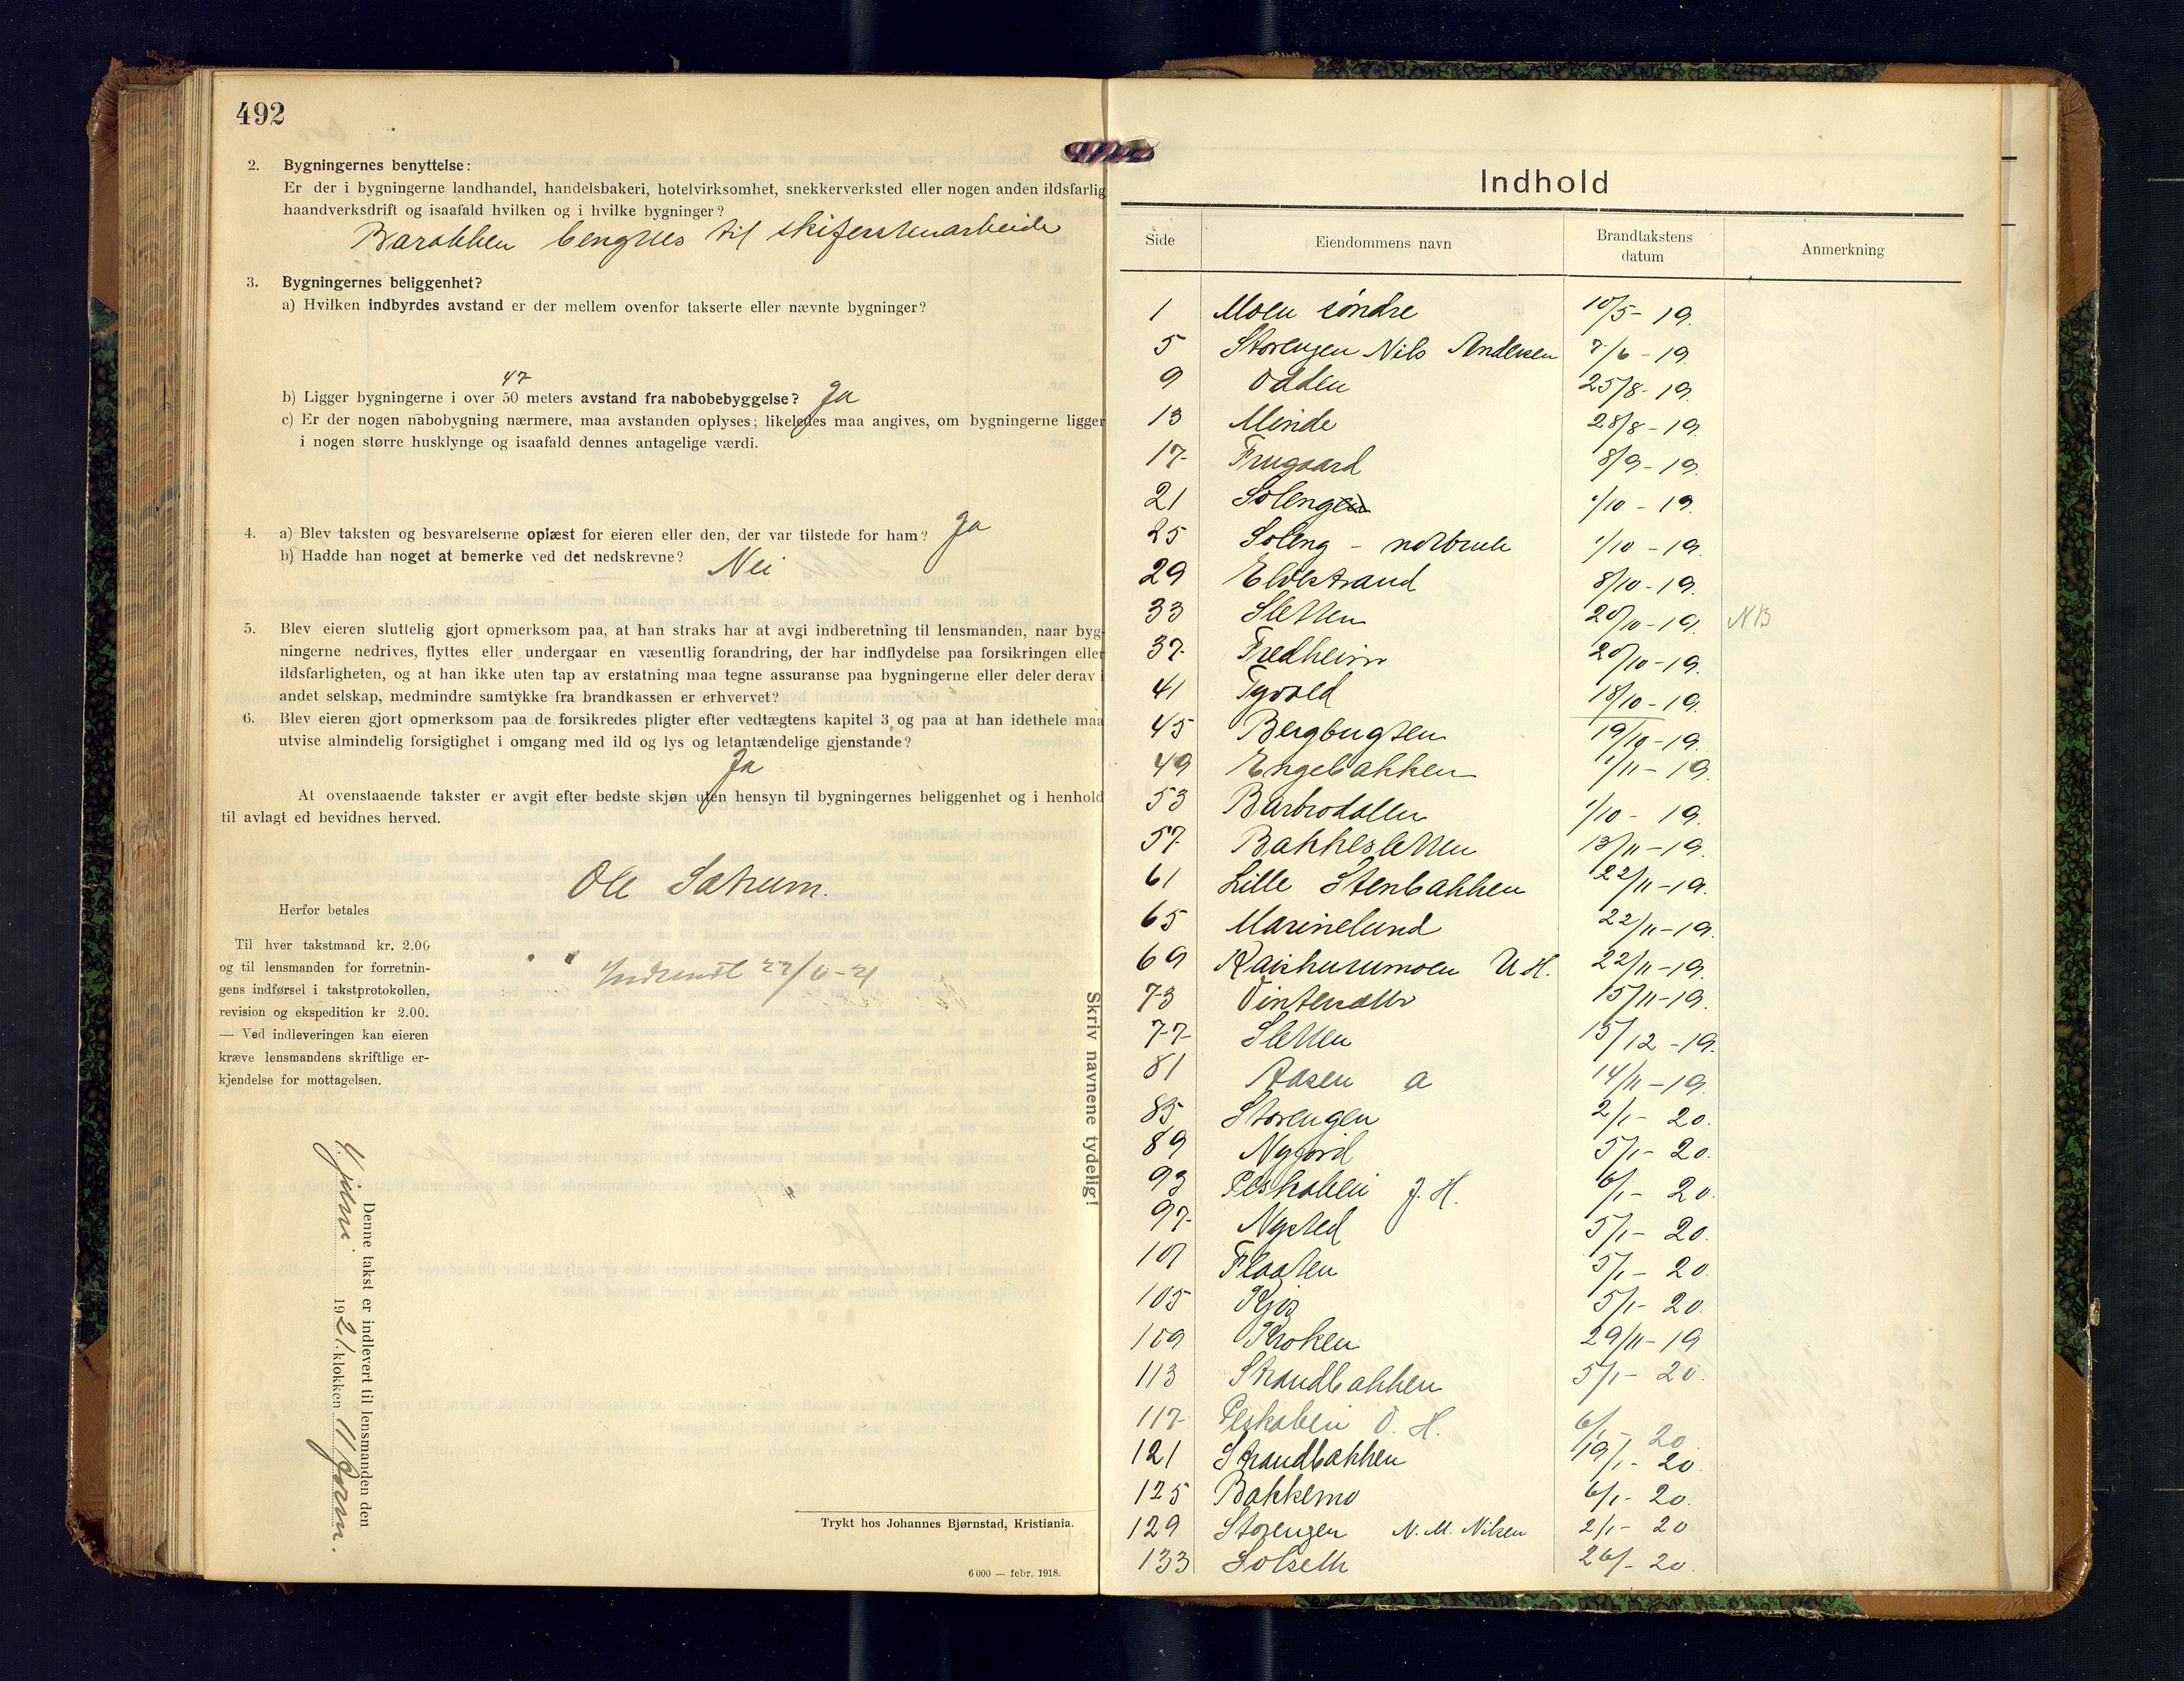 492
2. Bygningernes benyttelse:
Er der i bygningerne landhandel, handelsbakeri, hotelvirksomhet, snekkerverksted eller nogen anden ildsfarlig
haandverksdrift og isaafald hvilken og i hvilke bygninger?
Barakken benyttes til skiferstenarbeide
3. Bygningernes beliggenhet?
a) Hvilken indbyrdes avstand er der mellem ovenfor takserte eller nævnte bygninger?
47
b) Ligger bygningerne i over 50 meters avstand fra nabobebyggelse? Ja
c) Er der nogen nabobygning nærmere, maa avstanden oplyses; likeledes maa angives, om bygningerne ligger
i nogen større husklynge og isaafald dennes antagelige værdi.
4. a) Blev taksten og besvarelserne oplæst for eieren eller den, der var tilstede for ham? Ja
b) Hadde han noget at bemerke ved det nedskrevne? Nei
5. Blev eieren sluttelig gjort opmerksom paa, at han straks har at avgi indberetning til lensmanden, naar byg-
ningerne nedrives, flyttes eller undergaar en væsentlig forandring, der har indflydelse paa forsikringen eller
ildsfarligheten, og at han ikke uten tap av erstatning maa tegne assuranse paa bygningerne eller deler derav i
andet selskap, medmindre samtykke fra brandkassen er erhvervet?
6. Blev eieren gjort opmerksom paa de forsikredes pligter efter vedtægtens kapitel 3 og paa at han idethele maa
utvise almindelig forsigtighet i omgang med ild og lys og letantændelige gjenstande?
Ja
At ovenstaaende takster er avgit efter bedste skjøn uten hensyn til bygningernes beliggenhet og i henhold
til avlagt ed bevidnes herved.
Ole
Herfor betales
Til hver takstmand kr. 2.00
og til lensmanden for forretnin-
gens indførsel i takstprotokollen,
revision og ekspedition kr 2.00.
— Ved indleveringen kan eieren
kræve lensmandens skriftlige er-
kjendelse for mottagelsen.
Indsendt
Denne takst er indlevert til lensmanden den
1921. klokken 11 form.
Skriv navnene tydelig!
Trykt hos Johannes Bjørnstad, Kristiania.
6000 — febr. 1918.
Indhold
Side Eiendommens navn Brandtakstens datum Anmerkning
1 Moen søndre 10/5- 19.
5 Storengen Nils Andersen 7/6 - 19
9 Odden 25/8- 19.
13 Minde 28/8 - 19.
17 Frugaard 8/9 - 19.
21 Solengen 1/10 - 19.
25 Soleng - nordbruk 1/10 - 19.
29 Elvestrand 8/10 - 19.
33 Sletten 20/10 - 19. NB
37 Fredheim 20/10 - 19.
41 Tyvold 18/10 - 19.
45 Bergbugten 19/10 - 19.
49 Engebakken 1/11 - 19.
53 Barbrodallen 1/10 - 19.
57 Bakkesletten 13/11 - 19.
61 Lille Stenbakken 22/11 - 19.
65 Marinelund 22/11 - 19.
69 Raishusmoen U H. 22/11 - 19.
73 Vintersollv 15/11 - 19.
77 Sletten 15/12 - 19.
81 Aasen a 14/11 - 19.
85 Storengen 2/1 - 20.
89 Nyjord 5/1 - 20.
93 Peskaleni J. H. 6/1 - 20.
97 Nysted 5/1 - 20.
101 Flaaten 5/1 - 20.
105 Kjos 5/1 - 20.
109 Kroken 29/11 - 19
113 Strandbakken 5/1 - 20.
117 Peskaleni O. H. 6/1 - 20
121 Strandbakken 19/1 - 20
125 Bakkemo 6/1 - 20.
129 Storengen N. M. Nilsen 2/1 - 20
133 Solseth 26/ - 20.